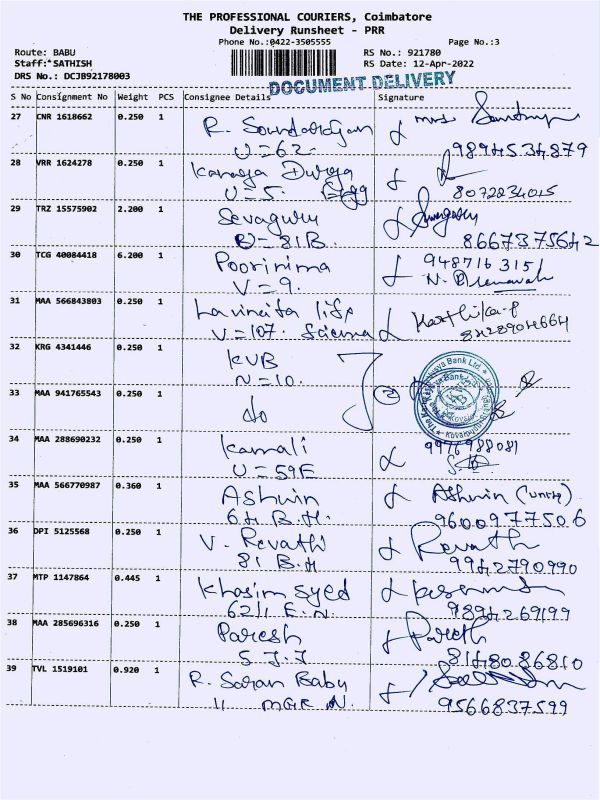 THE PROFESSIONAL COURIERS, Coimbatore
Delivery Runsheet - PRR
Phone No.:0422-3505555 Page No.:3
Route: BABU RS No.: 921780
Staff: SATHISH RS Date: 12-Apr-2022
DRS No.: DCJB92178003
DOCUMENT DELIVERY
S No Consignment No Weight PCS Consignee Details Signature
27 CNR 1618662 0.250 1 R. Soundarajan
U = 62. 9894534879
28 VRR 1624278 0.250 1 Kanaga Durga
U = 5. 8072234015
29 TRZ 15575902 2.200 1 Sevaguru
B = 81B. 8667375642
30 TCG 40084418 6.200 1 Poornima 948716 3151
V = 9.
31 MAA 566843803 0.250 1 life Karthika.P
V = 107. 8428904664
32 KRG 4341446 0.250 1 KVB
N = 10.
33 MAA 941765543 0.250 1 do
34 MAA 288690232 0.250 1 Kamali 9976988081
U = 59E
35 MAA 566770987 0.360 1 Ashwin Ashwin
64 B.H. 9600977506
36 DPI 5125568 0.250 1 V. Revathi Revath
81 B.H 9942790990
37 MTP 1147864 0.445 1 Khasim Syed
62/1 E.N 9894269199
38 MAA 285696316 0.250 1 Paresh
5 J.J 8148086810
39 TVL 1519101 0.920 1 R. Saran Babu
11 MGR N. 9566837599